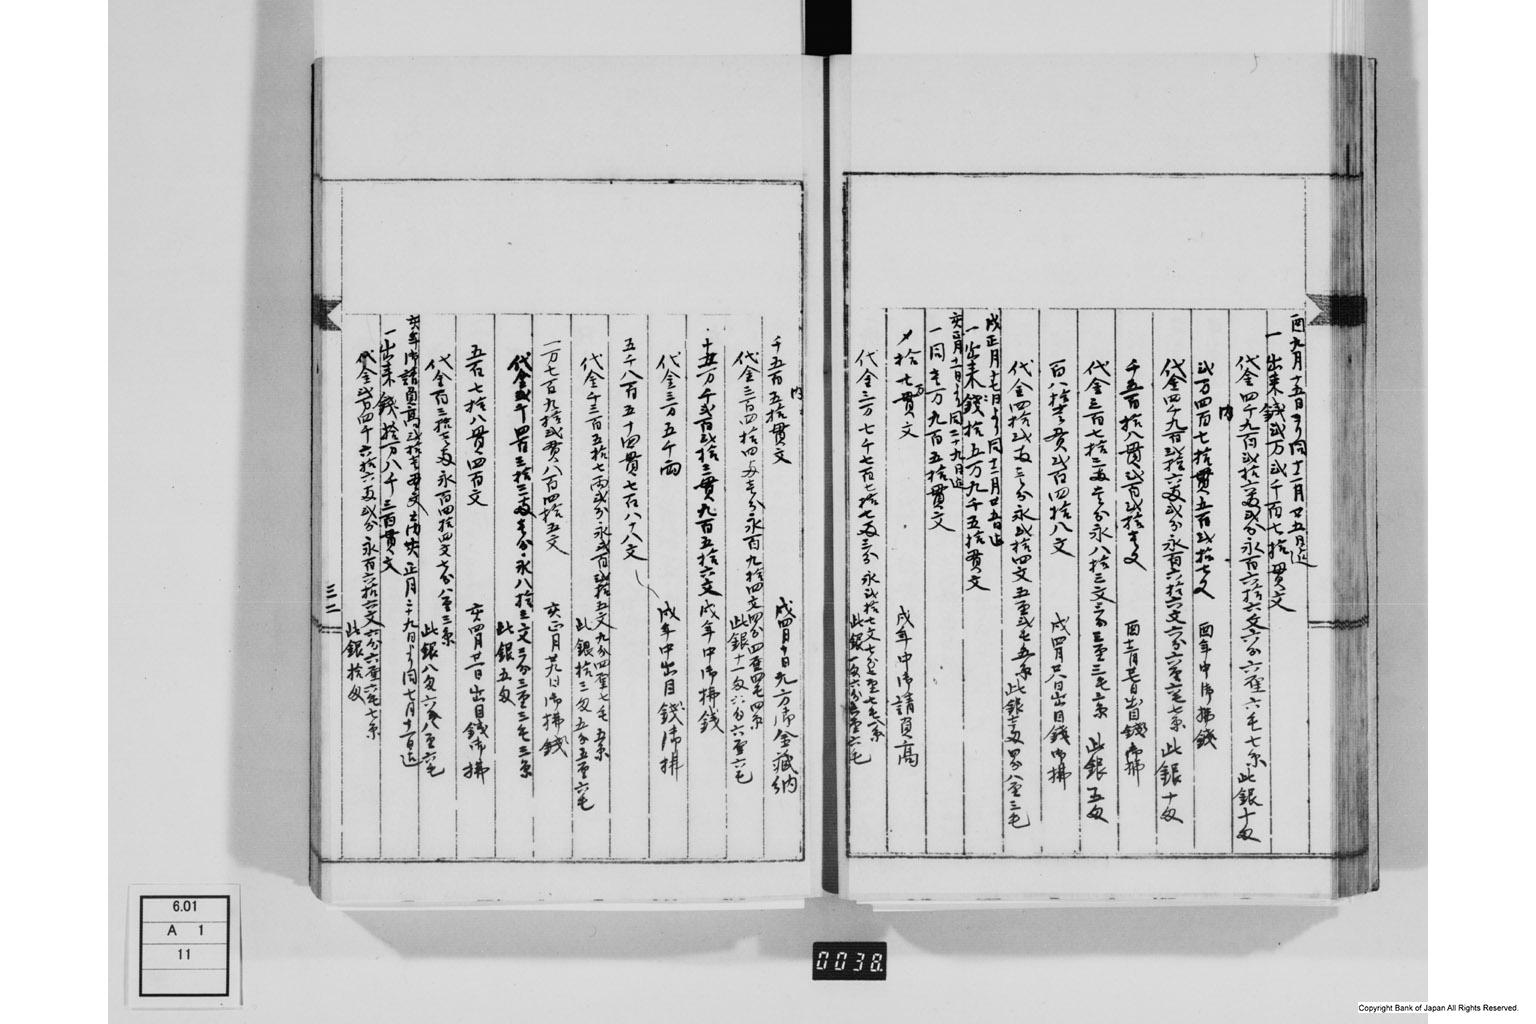 酉九月十五日より同十二月廿五日迄
一出来銭弐万弐千百七拾貫文
代金四千九百弐拾六両弐分永百六拾六文六分六厘六毛七糸 此銀十匁
内
弐万四百七拾貫五百弐拾七文 酉年中御払銭
代金四千九百弐拾六両弐分永百六拾六文六分六厘六毛七糸 此銀十匁
千五百拾八貫弐百弐拾壱文 酉十二月廿七日出目銭御払
代金三百七拾三両壱分永八拾三文三分三厘三毛六糸 此銀五匁
百八拾壱貫弐百四拾八文 戌四月廿八日出目銭御払
代金四拾弐両三分永弐拾四文五厘弐毛五糸 此銀壱匁四分八厘三毛
戌正月十七日より同十二月廿五日迄
一出来銭拾五万九千五拾貫文
亥正月十一日より同二十九日迄
一同壱万九百五拾貫文
〆拾七万貫文 戌年中御請負高
代金三万七千七百七拾七両三分永弐拾七文七分七厘七毛八糸 此銀一匁六分六厘六毛
内
千五百五拾貫文 戌四月十日九方御金蔵納
代金三百四拾四両壱分永百九拾四文四分四厘四毛四糸 此銀十一匁六分六厘六毛
十五万千弐百弐拾三貫九百五拾六文 戌年中御払銭
代金三万五千両
五千八百五十四貫七百八十八文 戌年中出目銭御払
代金千三百五拾七両弐分永弐百弐拾五文九分四厘七毛五糸 此銀拾三匁五分五厘六毛
一万七百九拾弐貫八百四拾五文 亥正月廿九日御払銭
代金弐千四百三拾三両壱分永八拾三文三分三厘三毛三糸 此銀五匁
五百七拾八貫四百文 亥四月廿一日出目銭御払
代金百三拾三両永百四拾四文七分八厘三糸 此銀八匁六分八厘六毛
亥年御請負高弐拾壱万貫文之内亥正月二十九日より同七月十一日迄
一出来銭拾万八千三百貫文
代金弐万四千六拾六両弐分永百六拾六文六分六厘六毛七糸 此銀拾匁
三二
6.01
A 1
11
0038.
Copyright Bank of Japan All Rights Reserved.